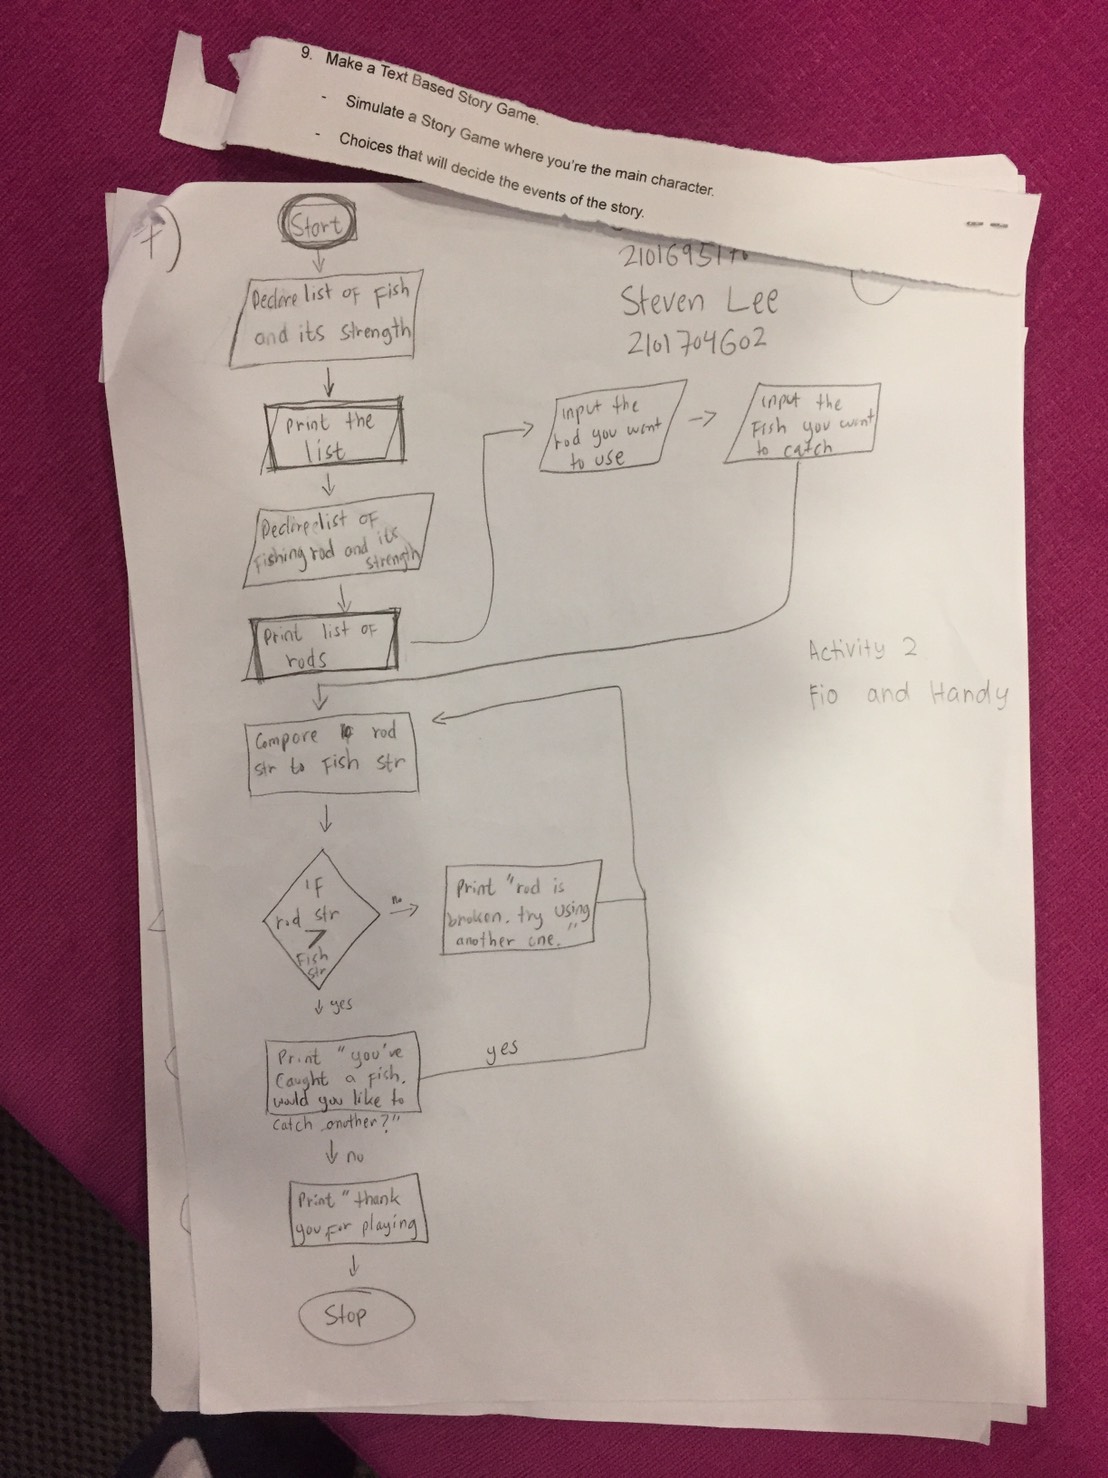 9. Make a Text Based Story Game.
- Simulate a Story Game where you're the main character.
- Choices that will decide the events of the story.
Steven Lee
2101704602
Start
Declare list of Fish
and its strength
Print the
list
Declare list of
Fishing rod and its
strength
Print list of
rods
Input the
rod you want
to use
input the
Fish you want
to catch
Compare rod
str to Fish str
IF
rod str
>
Fish
str
no
Print "rod is
broken. try using
another one."
yes
Print "you've
Caught a Fish.
would you like to
catch another?"
yes
no
Print "thank
you For playing
Stop
Activity 2
Fio and Handy